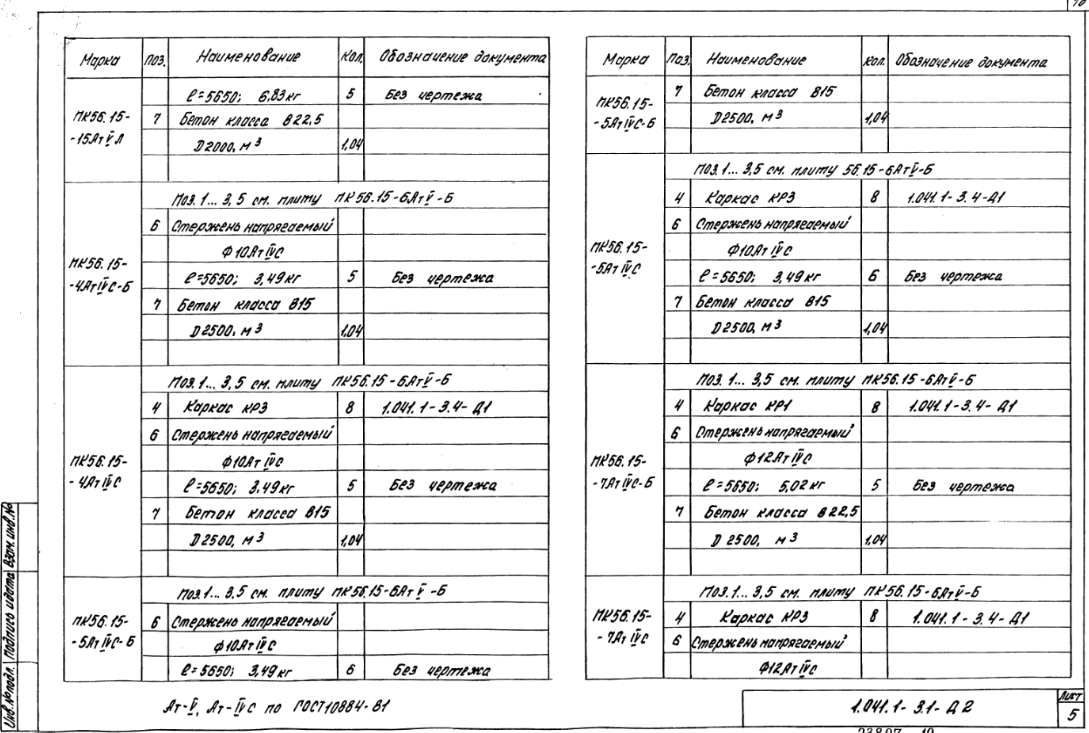 10
Марка Поз. Наименование Кол. Обозначение документа
ℓ=5650; 6,83кг 5 Без чертежа
ПК56.15- 7 Бетон класса В22,5
-15АтV̄Л D2000, м3 1,04
Поз. 1... 3,5 см. плиту ПК56.15-6АтV̄-Б
6 Стержень напрягаемый
Ф10АтIV̄С
ПК56.15- ℓ=5650; 3,49кг 5 Без чертежа
-4АтIV̄С-Б 7 Бетон класса В15
D2500, м3 1,04
Поз. 1... 3,5 см. плиту ПК56.15-6АтV̄-Б
4 Каркас КР3 8 1.041.1-3.4-Д1
6 Стержень напрягаемый
ПК56.15- Ф10АтIV̄С
-4АтIV̄С ℓ=5650; 3.49кг 5 Без чертежа
7 Бетон класса В15
D2500, м3 1,04
Поз.1... 3,5 см. плиту ПК56.15-6АтV̄-Б
ПК56.15- 6 Стержень напрягаемый
-5АтIV̄С-Б Ф10АтIV̄С
ℓ=5650; 3,49кг 6 Без чертежа
Марка Поз. Наименование Кол. Обозначение документа
7 Бетон класса В15
ПК56.15- D2500, м3 1,04
-5АтIV̄С-Б
Поз. 1... 3,5 см. плиту 56.15-6АтV̄-Б
4 Каркас КР3 8 1.041.1-3.4-Д1
6 Стержень напрягаемый
ПК56.15- Ф10АтIV̄С
-5АтIV̄С ℓ=5650; 3,49кг 6 Без чертежа
7 Бетон класса В15
D2500, м3 1,04
Поз. 1... 3,5 см. плиту ПК56.15-6АтV̄-Б
4 Каркас КР1 8 1.041.1-3.4-Д1
6 Стержень напрягаемый
ПК56.15- Ф12АтIV̄С
-7АтIV̄С-Б ℓ=5650; 5,02кг 5 Без чертежа
7 Бетон класса В22,5
D2500, м3 1,04
Поз.1... 3,5 см. плиту ПК56.15-6АтV̄-Б
ПК56.15- 4 Каркас КР3 8 1.041.1-3.4-Д1
-7АтIV̄С 6 Стержень напрягаемый
Ф12АтIV̄С
Ат-V̄, Ат-IV̄С по ГОСТ10884-81
1.041.1-3.1-Д2
Лист
5
Инв.№подл. Подпись и дата Взам.инв.№
23897 10